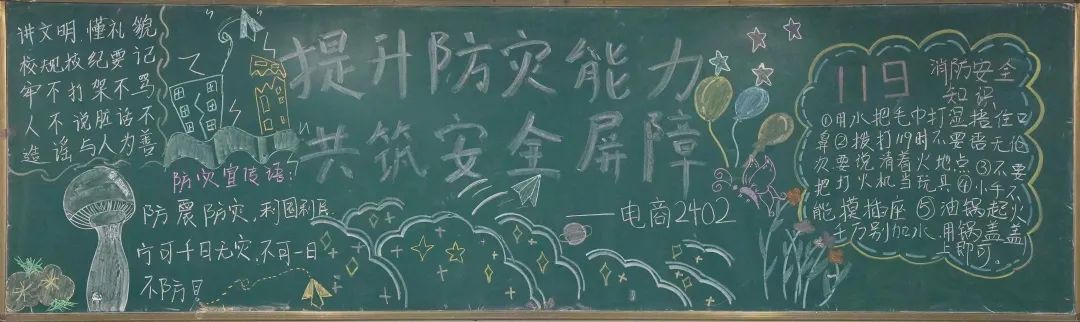 讲文明,懂礼貌
校规校纪要记
牢不打架不骂
人不说脏话不
造谣与人为善
防灾宣传语:
防震防灾,利国利民
宁可千日无灾,不可一日
不防!
提升防灾能力
共筑安全屏障
——电商2402
119
消防安全
知识
①用水把毛巾打湿捂住口
鼻②拨打119时不要语无伦
次要说清着火地点③不要
把打火机当玩具④小手不
能摸插座⑤油锅起火
千万别加水,用锅盖盖
上即可。